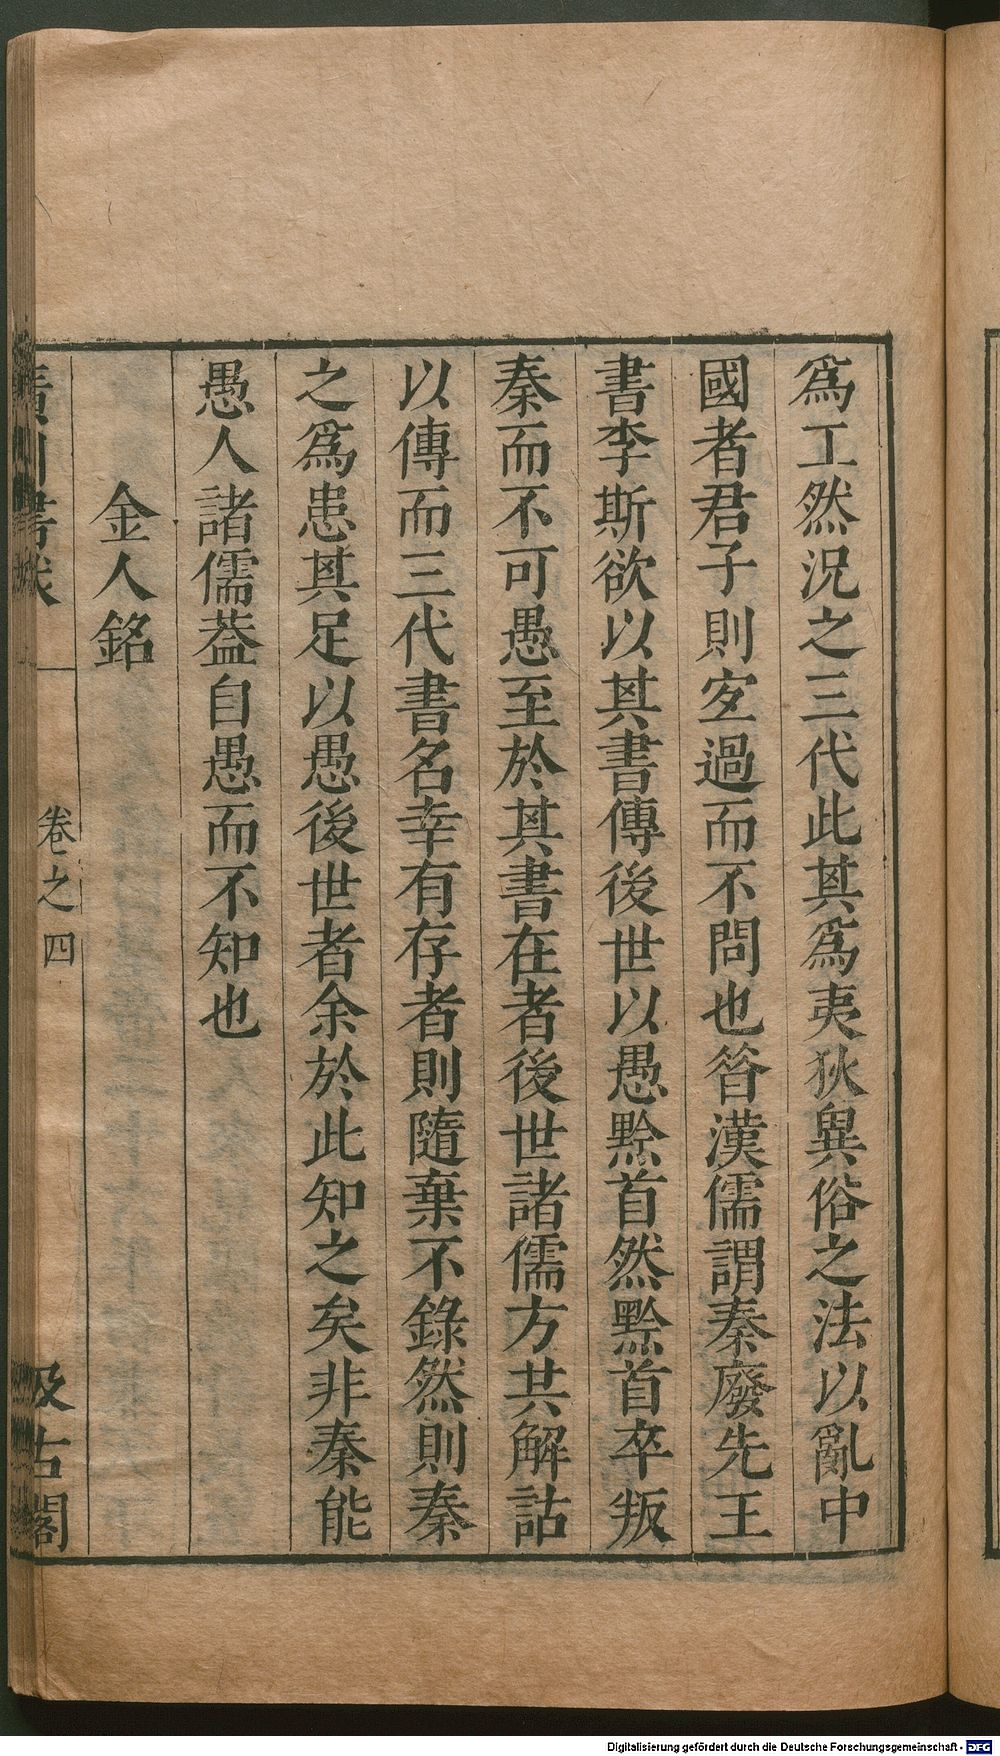 為工然況之三代此其為夷狄異俗之法以亂中
國者君子則定過而不問也昝漢儒謂秦廢先王
書李斯欲以其書傳後世以愚黔首然黔首卒叛
秦而不可愚至於其書在者後世諸儒方共解詁
以傳而三代書名幸有存者則隨棄不錄然則秦
之為患其足以愚後世者余於此知之矣非秦能
愚人諸儒葢自愚而不知也
金人銘
廣川書跋
卷之四
汲古閣
Digitalisierung gefördert durch die Deutsche Forschungsgemeinschaft - DFG